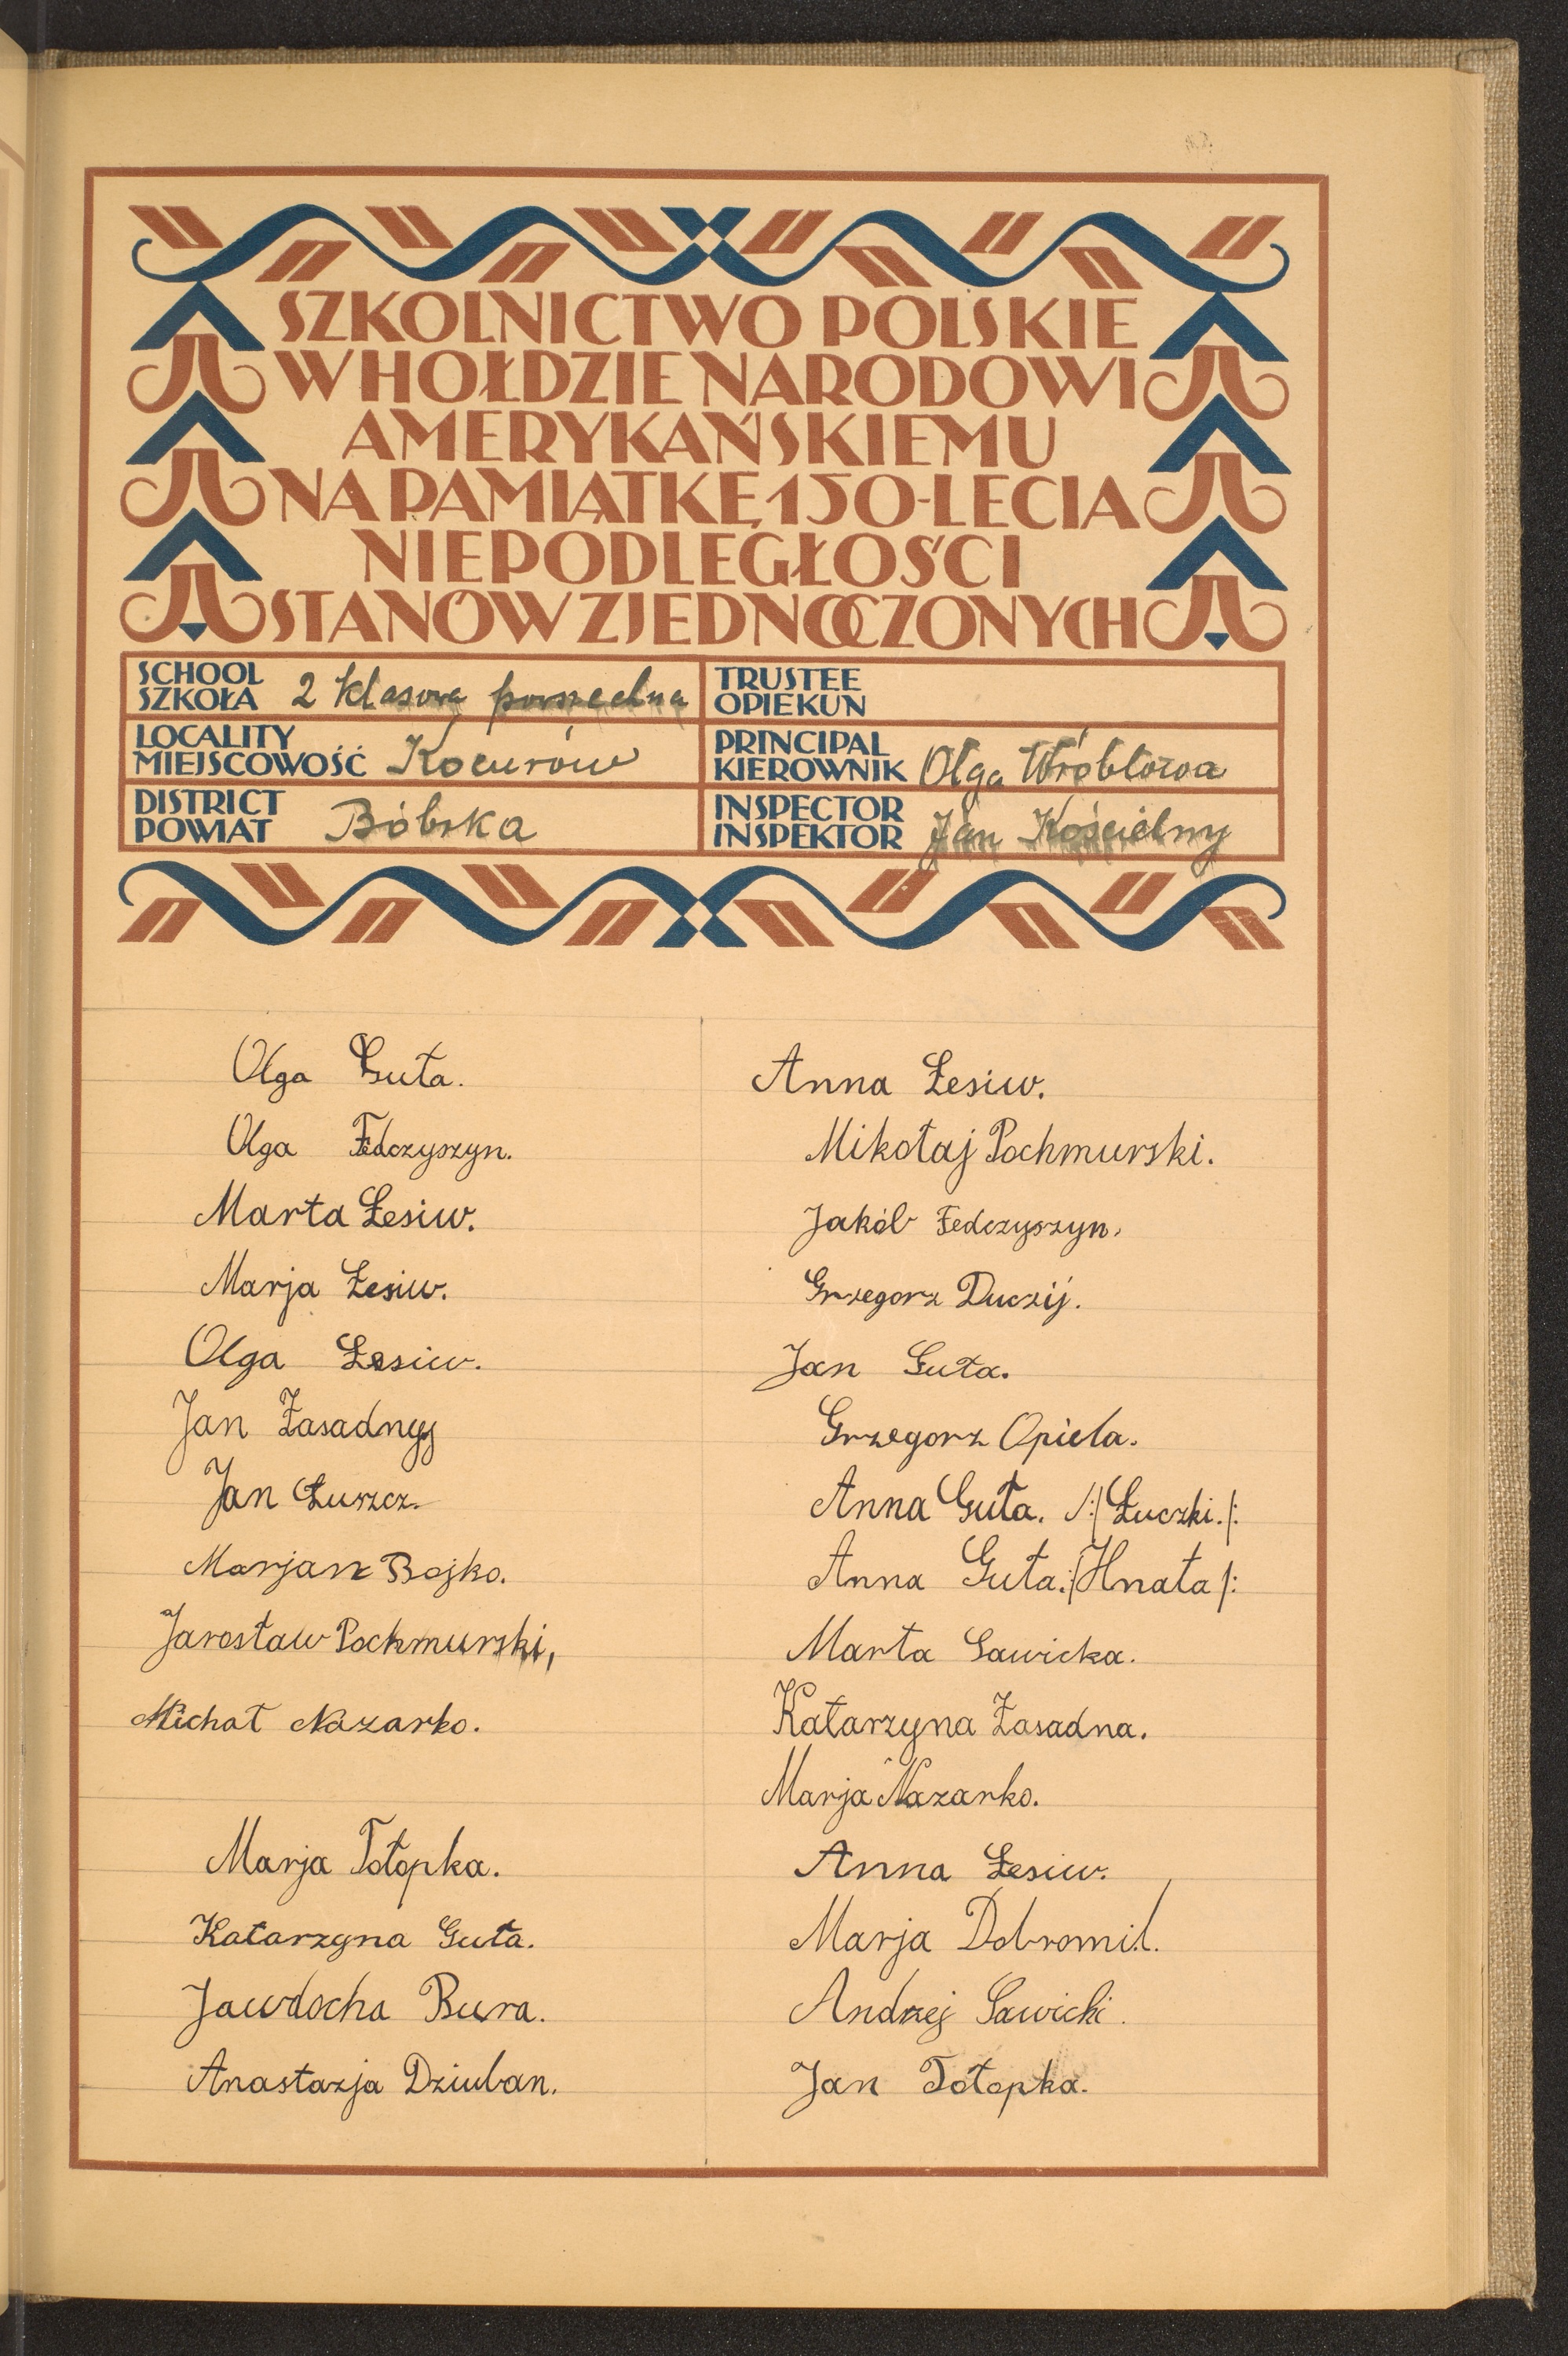 SZKOLNICTWO POLSKIE
W HOŁDZIE NARODOWI
AMERYKAŃSKIEMU
NA PAMIĄTKĘ 150-LECIA
NIEPODLEGŁOŚCI
STANÓW ZJEDNOCZONYCH
SCHOOL
SZKOŁA 2 klasowa powszechna
TRUSTEE
OPIEKUN
LOCALITY
MIEJSCOWOŚĆ Kocurów
PRINCIPAL
KIEROWNIK Olga Wróblowa
DISTRICT
POWIAT Bóbrka
INSPECTOR
INSPEKTOR Jan Kościelny
Olga Guta.
Olga Fedczyszyn.
Marta Łesiw.
Marja Łesiw.
Olga Łesiw.
Jan Zasadnyj
Jan Łuszcz.
Marjan Bojko.
Jarosław Pochmurski,
Michał Nazarko.
Marja Tołopka.
Katarzyna Guta.
Jawdocha Bura.
Anastazja Dziuban.
Anna Łesiw.
Mikołaj Pochmurski.
Jakób Fedczyszyn.
Grzegorz Duczij.
Jan Guta.
Grzegorz Opiela.
Anna Guta. /:/Łuczki./:
Anna Guta:/Hnata/:
Marta Sawicka.
Katarzyna Zasadna.
Marja Nazarko.
Anna Łesiw.
Marja Dobromil.
Andrzej Sawicki.
Jan Tołopka.